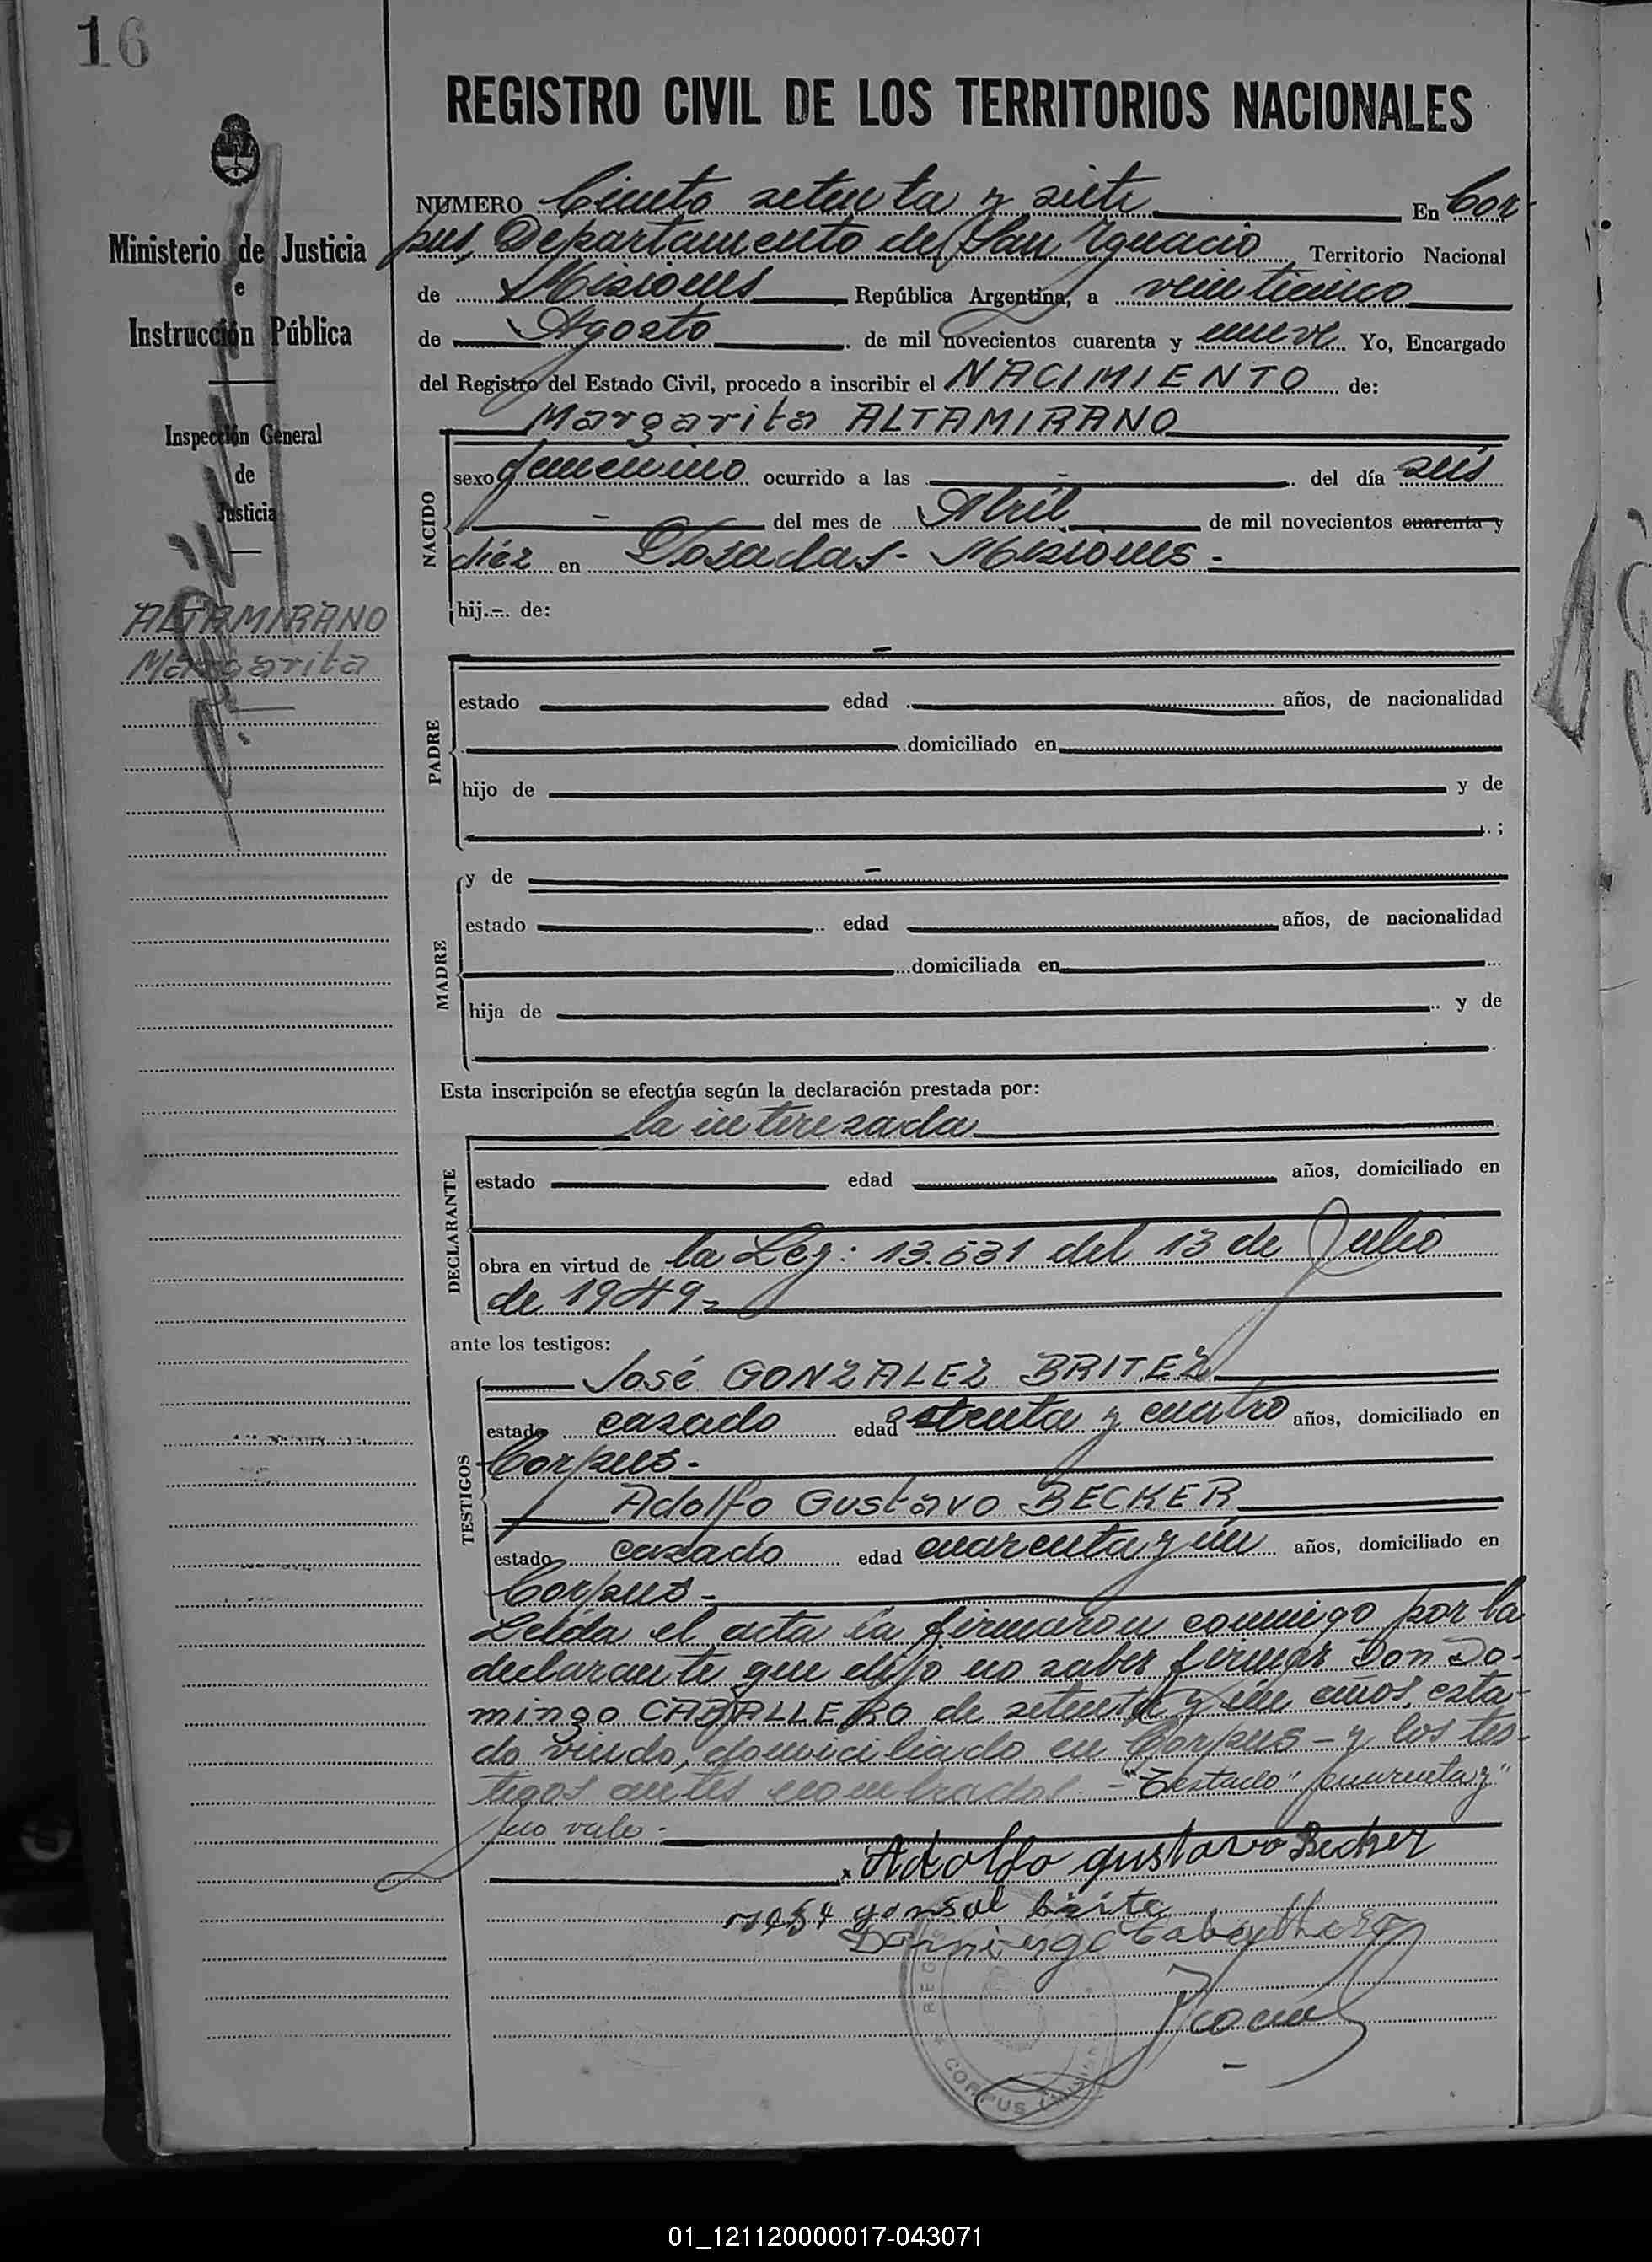 16
REGISTRO CIVIL DE LOS TERRITORIOS NACIONALES
Ministerio de Justicia
e
Instrucción Pública
Inspección General
de
Justicia
ALTAMIRANO
Margarita
NUMERO Ciento setenta y siete En Cor-
pus, Departamento de San Ignacio Territorio Nacional
de Misiones República Argentina, a veinticinco
de Agosto de mil novecientos cuarenta y nueve Yo, Encargado
del Registro del Estado Civil, procedo a inscribir el NACIMIENTO de:
Margarita ALTAMIRANO
NACIDO
sexo femenino ocurrido a las - del día seis
- del mes de Abril de mil novecientos cuarenta y
diéz en Posadas - Misiones -
hij.-. de:
PADRE
estado edad años, de nacionalidad
domiciliado en
hijo de y de
;
MADRE
y de -
estado edad años, de nacionalidad
domiciliada en
hija de y de
Esta inscripción se efectúa según la declaración prestada por:
la interezada
DECLARANTE
estado edad años, domiciliado en
obra en virtud de la Ley: 13.531 del 13 de Julio
de 1949-
ante los testigos:
TESTIGOS
José GONZALEZ BRITEZ
estado cazado edad setenta y cuatro años, domiciliado en
Corpus.-
Adolfo Gustavo BECKER
estado cazado edad cuarenta y ún años, domiciliado en
Corpus -
Leída el acta la firmaron conmigo por la
declarante que dijo no saber firmar Don Do-
mingo CABALLERO de setenta y ún años, esta-
do viudo, domiciliado en Corpus - y los tes-
tigos antes nombrados. - "Testado" "cuarenta y"
no vale.-
Adolfo gustavo Becker
gonsal brite
Domingo
REG
CORPUS
01_121120000017-043071